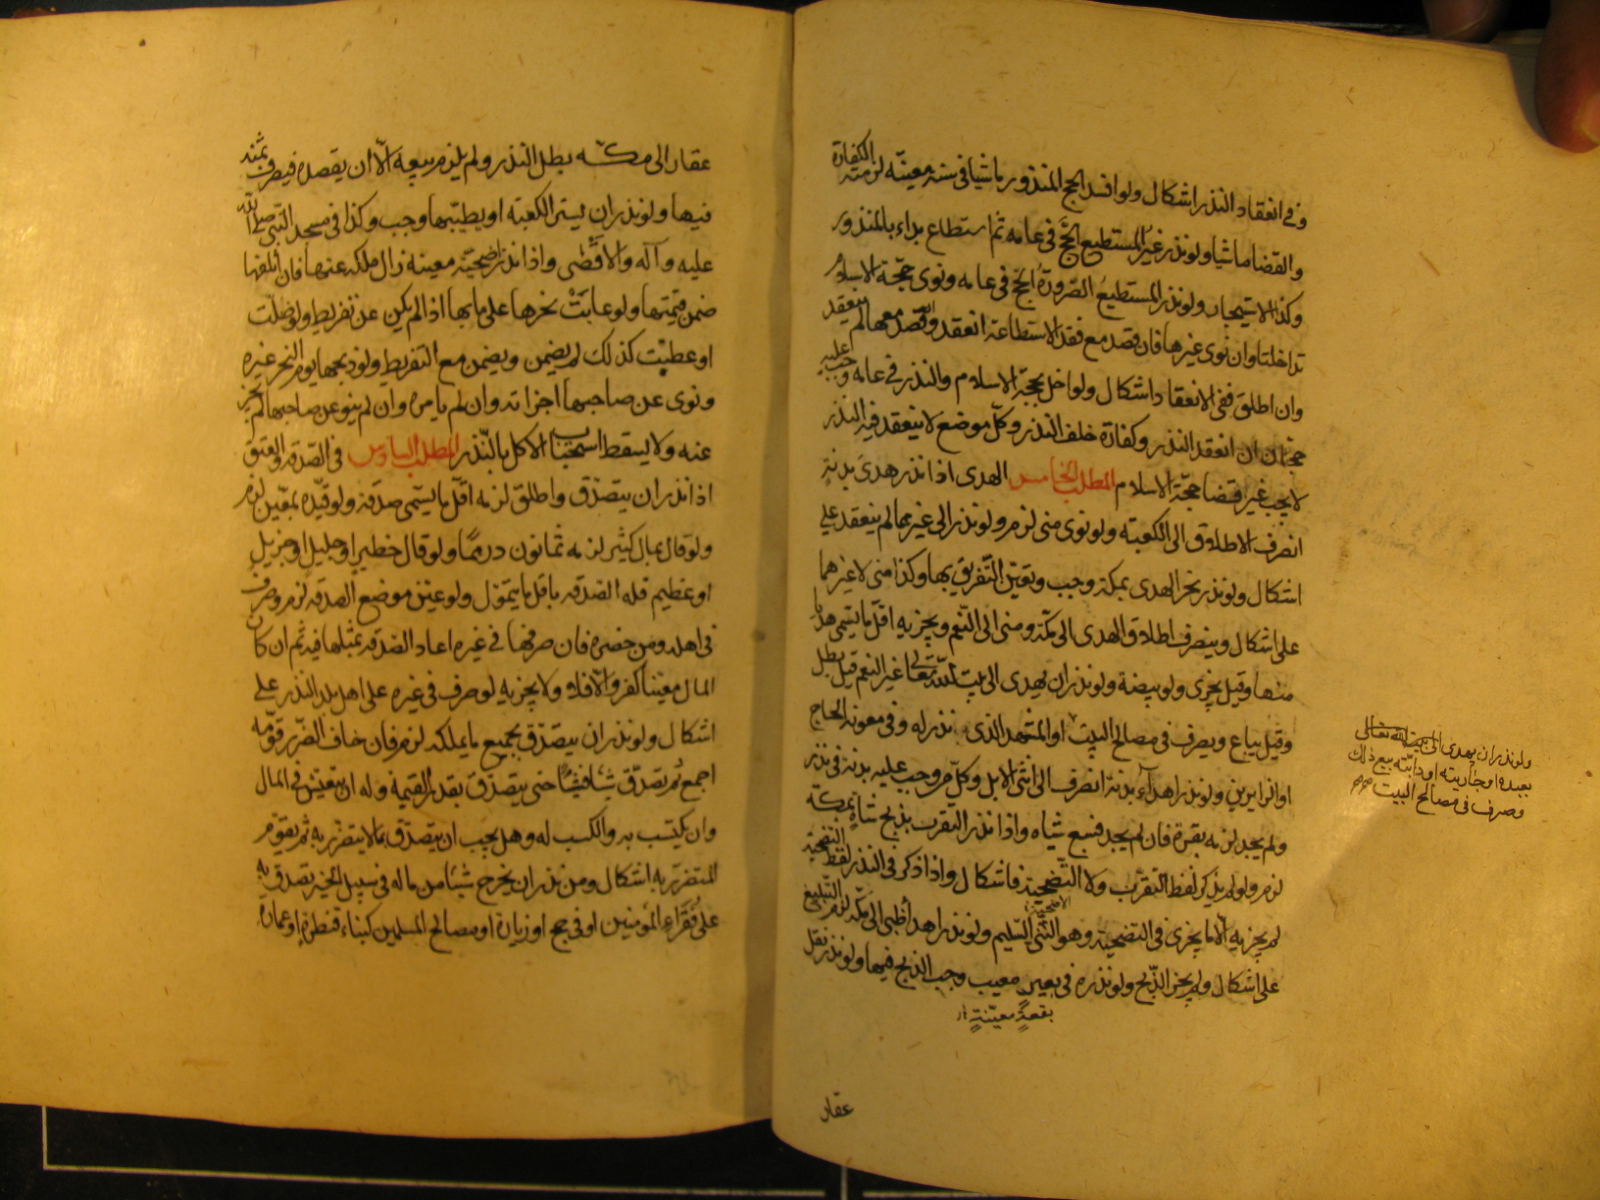 وفي انعقاد النذر اشكال ولو افسد الحج المنذور ماشيا في سنة معينة لزمته الكفارة
والقضا ماشيا ولو نذر غير المستطيع الحج في عامه ثم استطاع بداء بالمنذور
وكذا الاستيجار ولو نذر المستطيع الصرورة الحج في عامه ونوى حجة الاسلام
تداخلتا وان نوى غيرها فان قصد مع فقد الاستطاعة انعقد وان قصد معها لم ينعقد
وان اطلق ففي الانعقاد اشكال ولو اخل بحجة الاسلام والنذر في عامه وجب عليه
حجتان ان انعقد النذر وكفارة خلف النذر وكل موضع لا ينعقد فيه النذر
لا يجب غير قضا حجة الاسلام المطلب الخامس الهدى اذا نذر هدى بدنة
انصرف الاطلاق الى الكعبة ولو نوى منى لزم ولو نذر الى غيرهما لم ينعقد على
اشكال ولو نذر نحر الهدى بمكة وجب وتعين التفريق بها وكذا منى لا غيرهما
على اشكال وينصرف اطلاق الهدى الى مكة ومنى الى النعم ويجزيه اقل ما يسمى هديا
منها وقيل يجزى ولو بيضة ولو نذر ان يهدى الى بيت الله تعالى غير النعم قيل بطل
وقيل يباع ويصرف في مصالح البيت او المشهد الذى نذر له وفي معونة الحاج
او الزايرين ولو نذر اهداء بدنة انصرف الى انثى الابل وكل من وجب عليه بدنة في نذر
ولم يجد لزمه بقرة فان لم يجد فسبع شياه واذا نذر التقرب بذبح شاة بمكة
لزم ولو لم يذكر لفظ التقرب ولا التضحية فاشكال واذا ذكر في النذر لفظ التضحية
لم يجزيه الا ما يجزى في التضحية وهو الثني السليم ولو نذر اهدا ظبي الى مكة لزم التبليغ
الاضحية
على اشكال ولم يجز الذبح ولو نذره في بعير معيب وجب الذبح فيها ولو نذر نقل
بقعة معينة
عقار
ولو نذر ان يهدى الى بيت الله تعالى
بعبده او جاريته او دابته بيع ذلك
وصرف في مصالح البيت
عقار الى مكة بطل النذر ولم يلزم بيعه الا ان يقصده فيصرف ثمنه
فيها ولو نذر ان يستر الكعبة او يطيبها وجب وكذا في مسجد النبي صلى الله
عليه وآله والاقصى واذا نذر اضحية معينة زال ملكه عنها فان اتلفها
ضمن قيمتها ولو عابت نحرها على ما بها اذا لم يكن عن تفريط ولو ضلت
او عطبت كذلك لم يضمن ويضمن مع التفريط ولو ذبحها يوم النحر غيره
ونوى عن صاحبها اجزاته وان لم يامره وان لم ينو عن صاحبها لم يجز
عنه ولا يسقط استحباب الاكل بالنذر المطلب السادس في الصدقة والعتق
اذا نذر ان يتصدق واطلق لزمه اقل ما يسمى صدقة ولو قيده بمعين لزم
ولو قال بمال كثير لزمه ثمانون درهما ولو قال خطير او جليل او جزيل
او عظيم فله الصدقة باقل ما يتمول ولو عين موضع الصدقة لزم وصرف
في اهله ومن حضره فان صرفها في غيره اعاد الصدقة بمثلها فيه ثم ان كان
المال معينا كفر والا فلا ولا يجزيه لو صرف في غيره على اهل بلد النذر على
اشكال ولو نذر ان يتصدق بجميع ما يملكه لزم فان خاف الضرر قومه
اجمع ثم تصدق شيئا فشيئا حتى يتصدق بقدر القيمة وله ان يتعيش في المال
وان يكتسب به والكسب له وهل يجب ان يتصدق بما لا يتضرر به ثم يقوم
المتضرر به اشكال ومن نذر ان يخرج شيئا من ماله في سبيل الخير تصدق به
على فقراء المؤمنين او في حج او زيارة او مصالح المسلمين كبناء قنطرة او عمارة